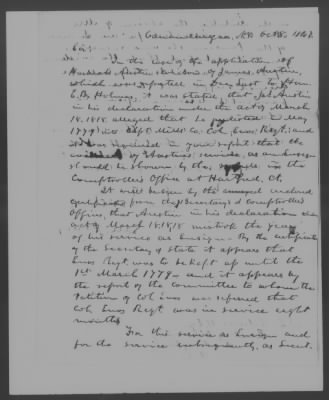 Canandaigua, N.Y. Oct 8. 1868
Sir,
In the case of the application of
Hannah Austin widow of James Austin,
which was rejected in last to Hon.
E. B. Holmes, it was stated, that Jas Austin
in his declaration under the act of March
18. 1818. alleged that he enlisted in May
1779 in Capt Mills Co. Col. Enos Regt; and
it was required in your report that the
of Austin's service, as an Ensign
should be shown by the rolls in the
Comptrollers Office at Hartford, Ct.
It will be seen by the enclosed
certificates from the Secretary & Comptrollers
Offices, that Austin in his declaration
act of March 18. 1818 mistook the year
of his service as Ensign. By the certificate
of the Secretary of State it appears that
Enos Regt. was to be kept up until the
1st March 1779 and it appears by
the report of the Committee to whom the
Petition of Col Enos was referred that
Col. Enos Regt. was in service eight
months.
For this service as Ensign and
for the service subsequently, as Lieut.